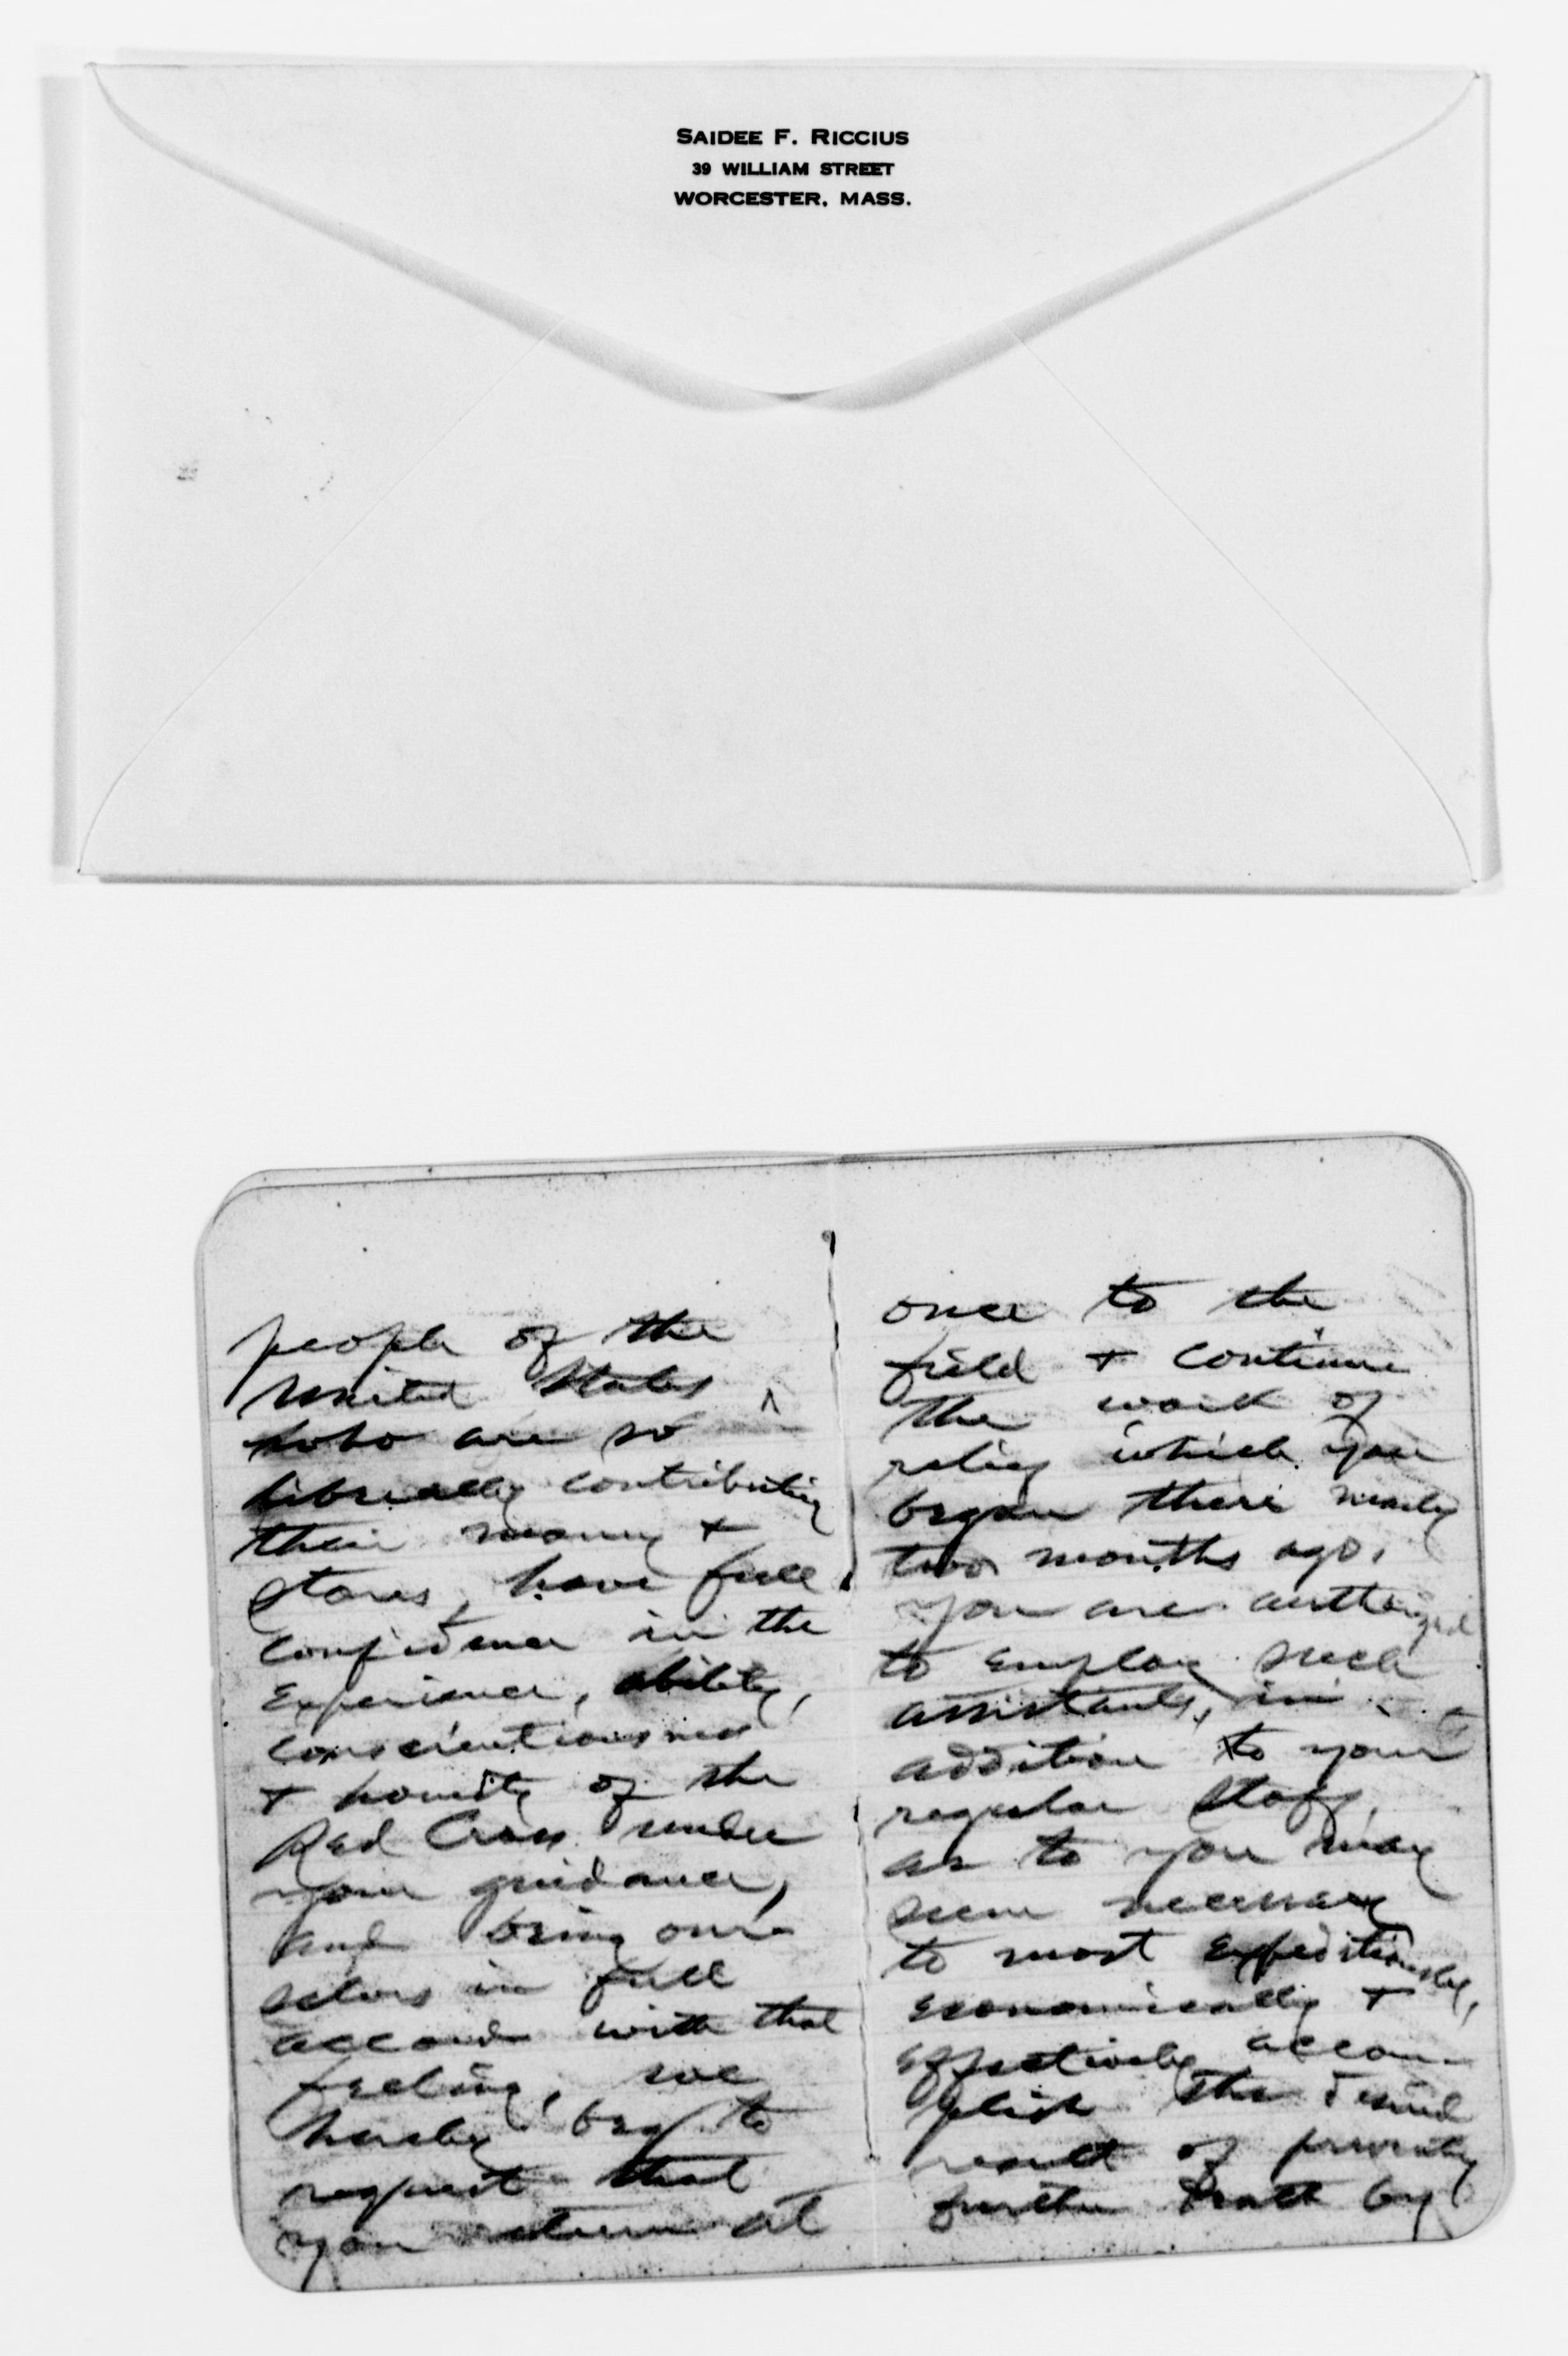 SAIDEE F. RICCIUS
39 WILLIAM STREET
WORCESTER, MASS.
people of the
United States
who are so
liberally contributing
their money +
stores, have full
confidence in the
experience, ability,
conscientiousness
+ honesty of the
Red Cross under
your guidance,
and being our-
selves in full
accord with that
feeling, we
hereby beg to
request that
you return at
once to the
field + continue
the work of
relief which you
began there nearly
two months ago.
You are authorized
to employ such
assistants, in
addition to your
regular staff,
as to you may
seem necessary
to most expeditiously,
economically +
effectively accom-
plish the desired
result of preventing
further death by